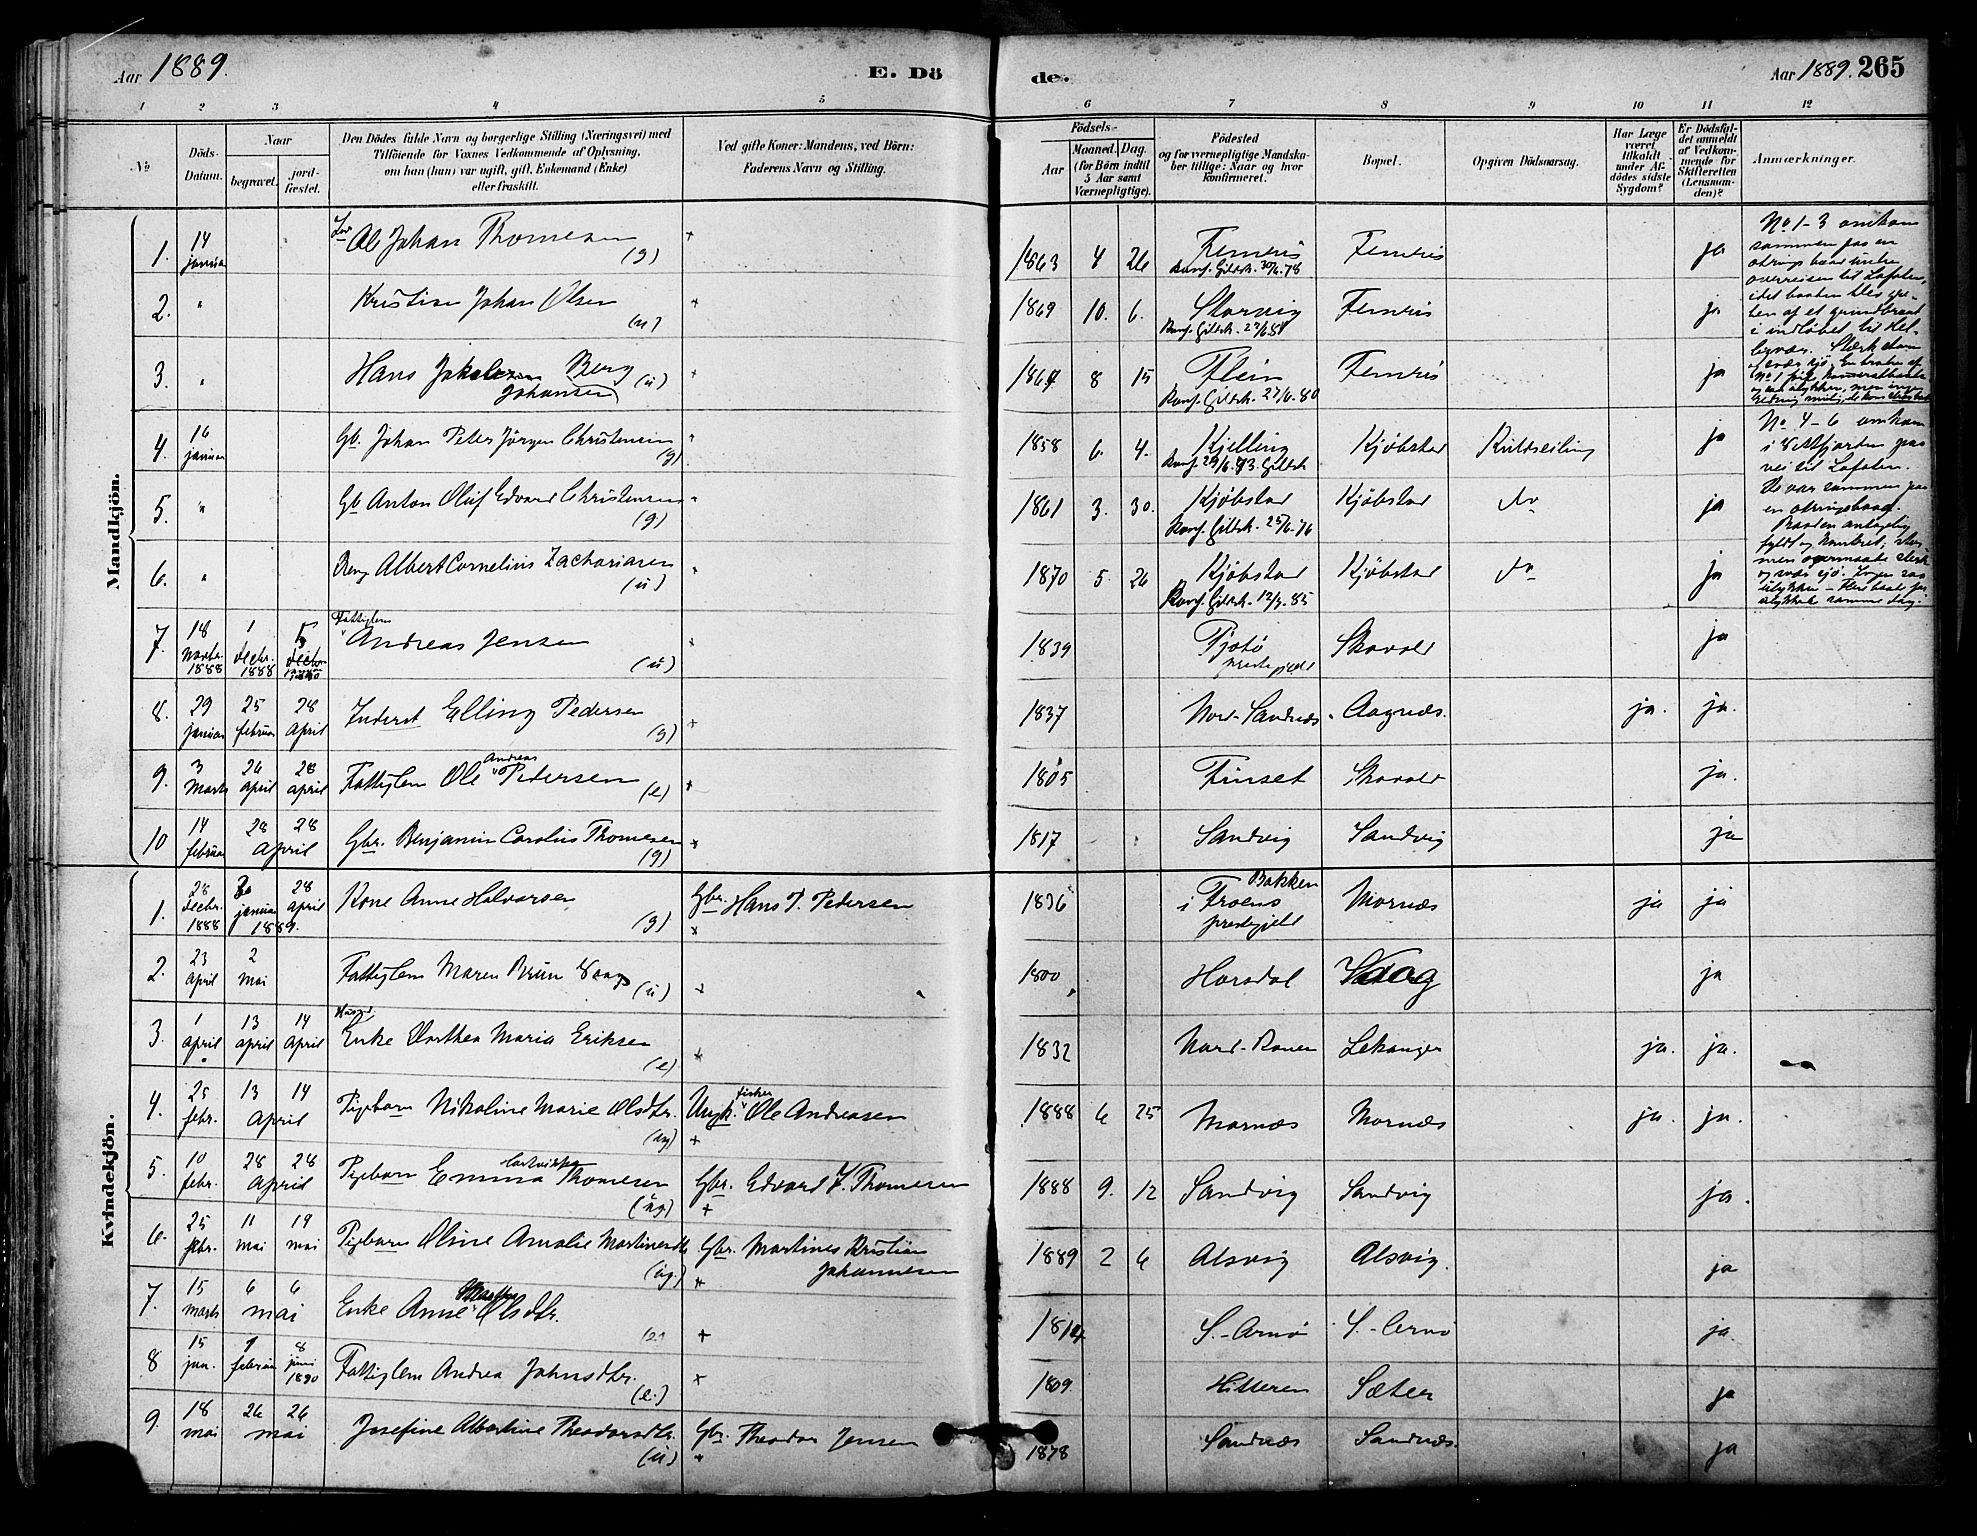 Aar 1889.
E. Dö
de.
Aar 1889. 265
1 2 3 4 5 6 7 8 9 10 11 12
№
Döds-
Datum.
Naar
begravet.
jord-
fæstet.
Den Dödes fulde Navn og borgerlige Stilling (Næringsvei) med
Tilföiende for Voxnes Vedkommende af Oplysning,
om han (hun) var ugift, gift, Enkemand (Enke)
eller fraskilt.
Ved gifte Koner: Mandens, ved Börn:
Faderens Navn og Stilling.
Födsels-
Aar
Maaned. Dag.
(for Börn indtil
5 Aar samt
Værnepligtige).
Födested
og for værnepligtige Mandska-
ber tillige: Naar og hvor
konfirmeret.
Bopæl.
Opgiven Dödsaarsag.
Har Læge
været
tilkaldt
under Af-
dödes sidste
Sygdom?
Er Dödsfal-
det anmeldt
af Vedkom-
mende for
Skifteretten
(Lensman-
den)?
Anmærkninger.
Mandkjön.
1. 14 januar Ole Johan Thomesen (g) + 1863 4 26 Femris Femris ja
Konf. Gildsk. 30/6.78
2. " Kristian Johan Olsen (u) + 1869 10. 6. Storvig Femris ja
3. " Hans Berg (u) + 8 15 Flein Femris ja
Johansen
Konf. Gildsk. 27/6.80
No 1-3 omkom
sammen paa en
overreisen til Lofoten,
idet baaden blev
af et grundbraat
i indløbet til Hel-
ligvær.
4. 16 januar Gb. Johan Peter Jörgen Christensen (g) " 1858 6. 4. Kjelling Kjöbstad Kuldseiling ja
5. " Gb Anton Oluf Edvard Christensen (g) " 1861 3. 30. Kjöbstad Kjöbstad do ja
Konf. Gildsk. 25/6.76
6. " Albert Cornelius Zachariasen (u) " 1870 5. 26 Kjöbstad Kjöbstad do ja
Konf. Gildsk.
No 4-6 omkom
i paa
vei til Lofoten.
De var sammen paa
en otringsbaad.
Baaden antagelig
fyldt og kantret;
samme dag.
7. 18 Novbr. 1888 1 decbr. 1888 5 Fattiglem Andreas Jensen (u) 1839 Skavold ja
8. 29 januar 25 februar 28 april Inderst Elling Pedersen (g) + 1837 Nord-Sandnæs. Aagnæs. ja. ja.
9. 3 Marts 26 april 28 april Fattiglem Ole Andreas Pedersen (e) + 1805 Finset Skavold ja.
10 14 februar 28 28 april Gbr. Benjamin Carolius Thomesen (g) + 1817 Sandvig Sandvig ja
Kvindekjön.
1. 28 decbr. 1888 januar 1889. 28 april Kone Anne Halvorsen (g) Gbr. Hans P. Pedersen + 1836 Bakken i Froens prestegjeld Mornæs ja ja
2. 23 april 2 mai Fattiglem Maren Brun (u) + 1800 Horsdal Vaag ja
3. 1 april 13 april 14 april Enke Dorthea Maria Eriksen (e) + 1832 Nord-Ranen Lekanger ja. ja.
4. 25 febr. 13 14 april Pigebarn Nikoline Marie Olsdtr. (ug) Ungk. fisker Ole Andreasen + 1888 6 25 Mornæs Mornæs ja. ja.
5. 10 febr. 28 28 april Pigebarn Emma Thomesen (ug.) Gbr. Edvard J. Thomesen + 1888 9. 12 Sandvig Sandvig ja.
6. 25 febr. 11 mai 19 mai Pigebarn Oline Amalie (ug.) Gbr. Martines Kristian Johannesen + 1889 2 6 Alsvig Alsvig. ja
7. 15 marts 6 6 mai Enke Anne Olsdtr. (e) + S.-Arnö S.-Arnö ja.
8 15 jan. februar 8 juni 1890 Fattiglem Andrea Johnsdtr. (e.) + 1809 Hitteren Sæter ja
9. 18 mai 26 26 mai Josefine Albertine Theodorsdtr. (u) Gbr. Theodor Jensen + 1878 Sandnæs Sandnæs. ja